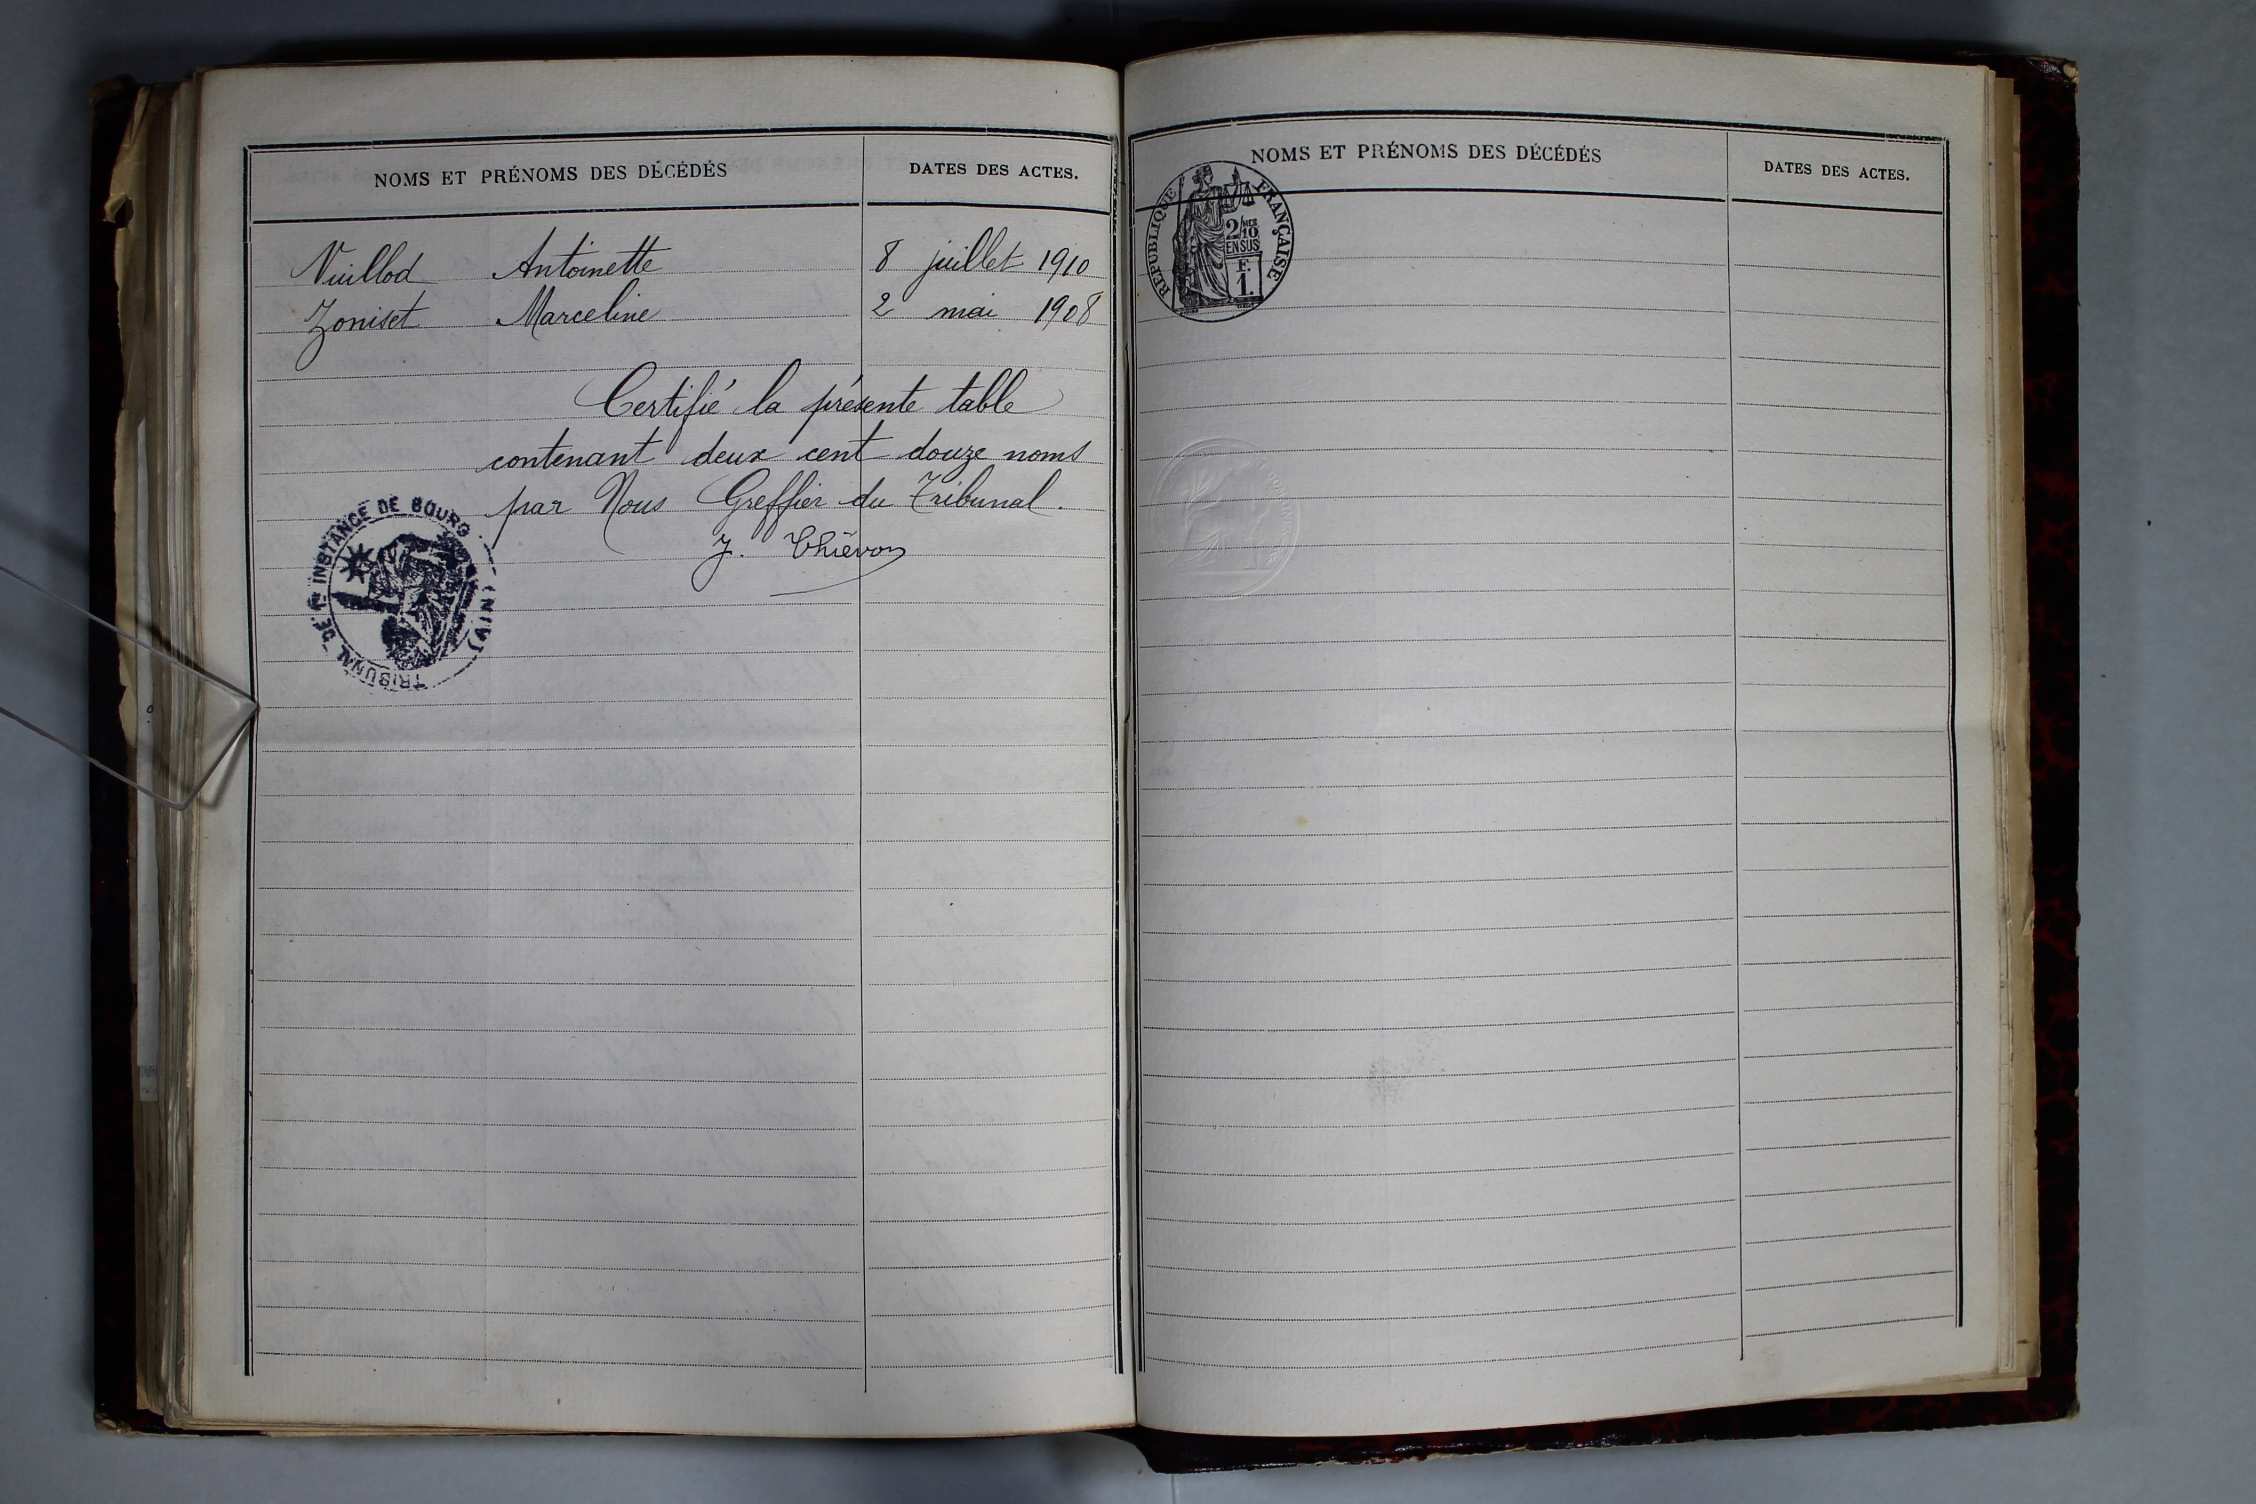 NOMS ET PRÉNOMS DES DÉCÉDÉS DATES DES ACTES.
Vuillod Antoinette 8 juillet 1910
Zoniset Marceline 2 mai 1908
Certifié la présente table
contenant deux cent douze noms
par Nous Greffier du Tribunal.
J. Thiévon
TRIBUNAL DE 1re INSTANCE DE BOURG (AIN)
NOMS ET PRÉNOMS DES DÉCÉDÉS DATES DES ACTES.
RÉPUBLIQUE FRANÇAISE
2/10MES
EN SUS
F.
1.